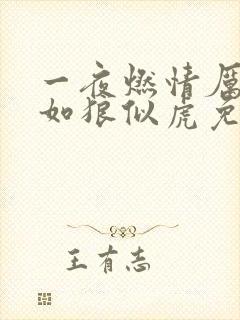 一夜燃情厉
如狼似虎免
王有志